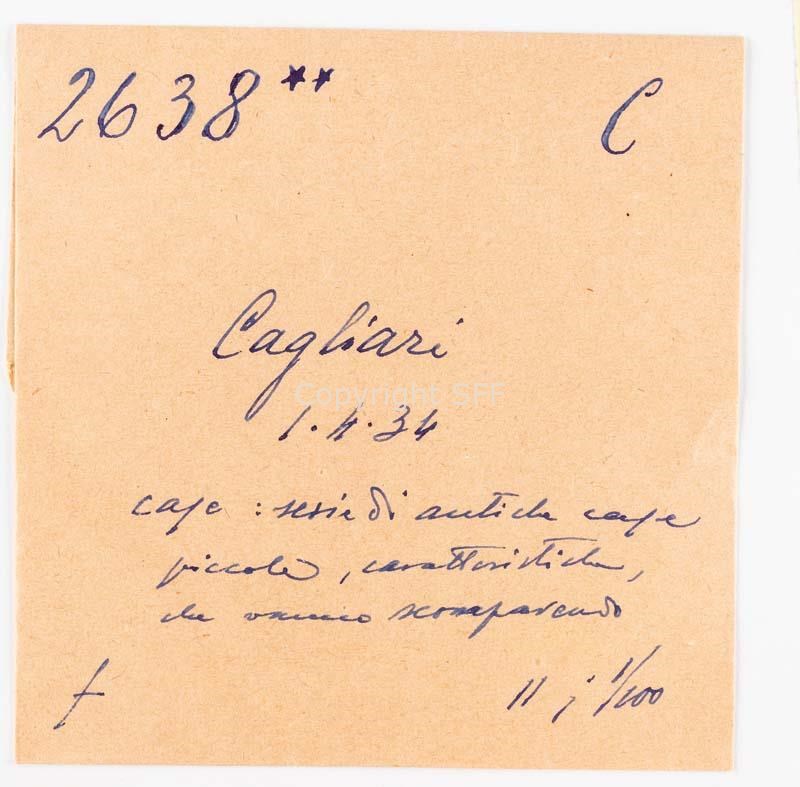 2638** C
Cagliari
Copyright SFF
1.4.34
case : serie di antiche case
piccole, caratteristiche,
che vanno scomparendo
f 11 ; 1/100